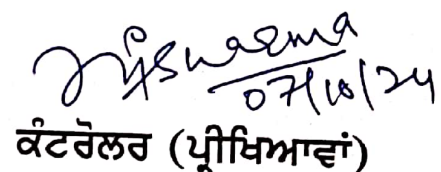 07/10/24
ਕੰਟਰੋਲਰ (ਪ੍ਰੀਖਿਆਵਾਂ)